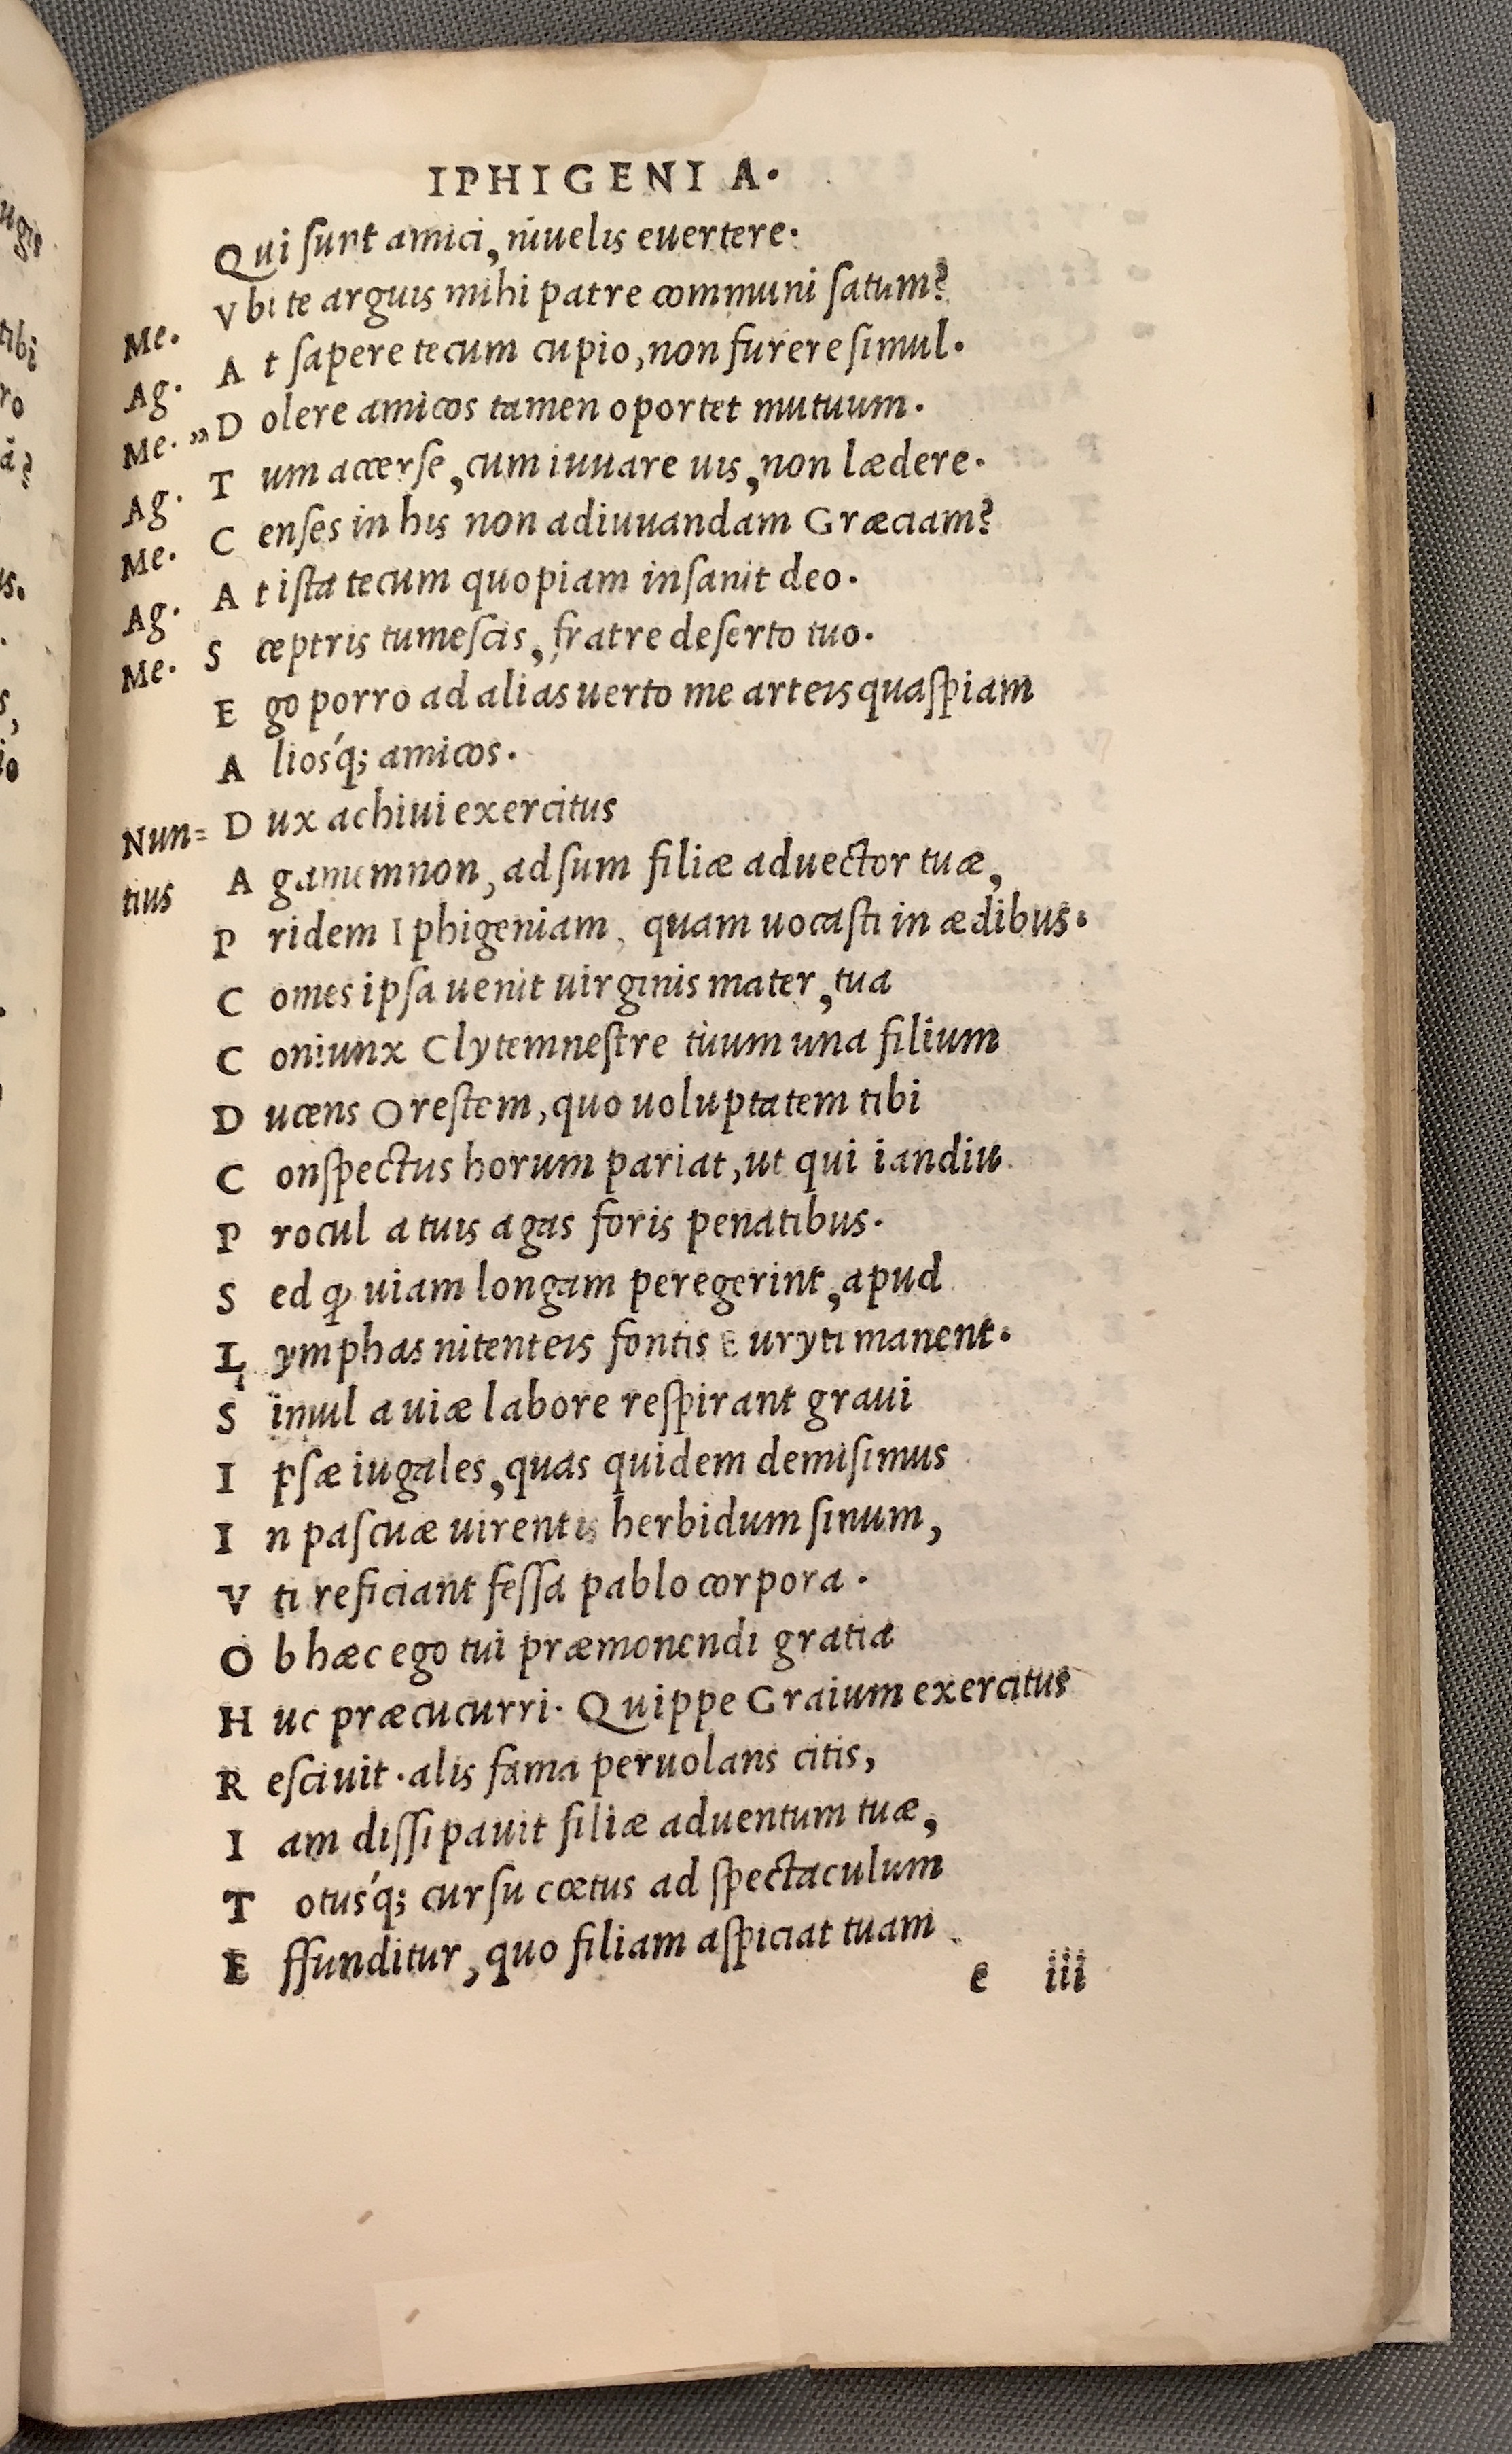 IPHIGENIA.
Qui sunt amici, ni uelis euertere.
Me. Vbi te arguis mihi patre communi satum?
Ag. At sapere tecum cupio, non furere simul.
Me. „Dolere amicos tamen oportet mutuum.
Ag. Tum accerse, cum iuuare uis, non lædere.
Me. Censes in his non adiuuandam Græciam?
Ag. At ista tecum quopiam insanit deo.
Me. Sceptris tumescis, fratre deserto tuo.
Ego porro ad alias uerto me arteis quaspiam
Aliosq́; amicos.
Nun= Dux achiui exercitus
tius Agamemnon, adsum filiæ aduector tuæ,
Pridem Iphigeniam, quam uocasti in ædibus.
Comes ipsa uenit uirginis mater, tua
Coniunx Clytemnestre tuum una filium
Ducens Orestem, quo uoluptatem tibi
Conspectus horum pariat, ut qui iandiu
Procul a tuis agas foris penatibus.
Sed ꝙ uiam longam peregerint, apud
Lymphas nitenteis fontis Euryti manent.
Simul a uiæ labore respirant graui
Ipsæ iugales, quas quidem demisimus
In pascuæ uirentis herbidum sinum,
Vti reficiant fessa pablo corpora.
Ob hæc ego tui præmonendi gratia
Huc præcucurri. Quippe Graium exercitus
Resciuit. alis fama peruolans citis,
Iam dissipauit filiæ aduentum tuæ,
Totusq́; cursu cœtus ad spectaculum
Effunditur, quo filiam aspiciat tuam
e iii